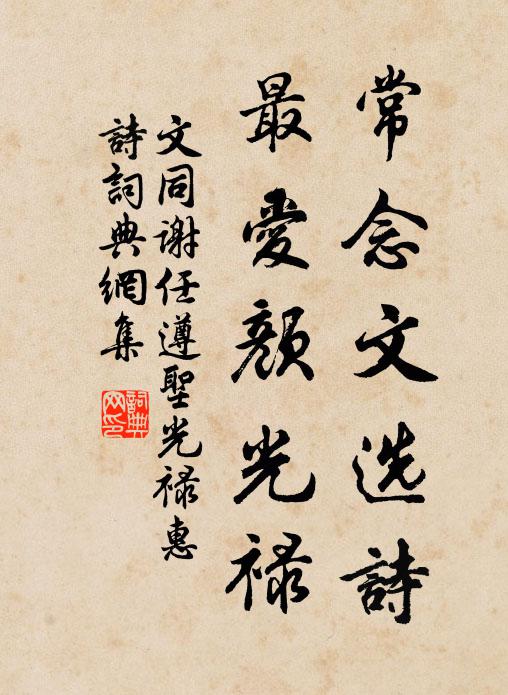 常念文选詩
最愛顔光禄
文同謝任遵聖光禄惠
詩詞典網集
詞典网印